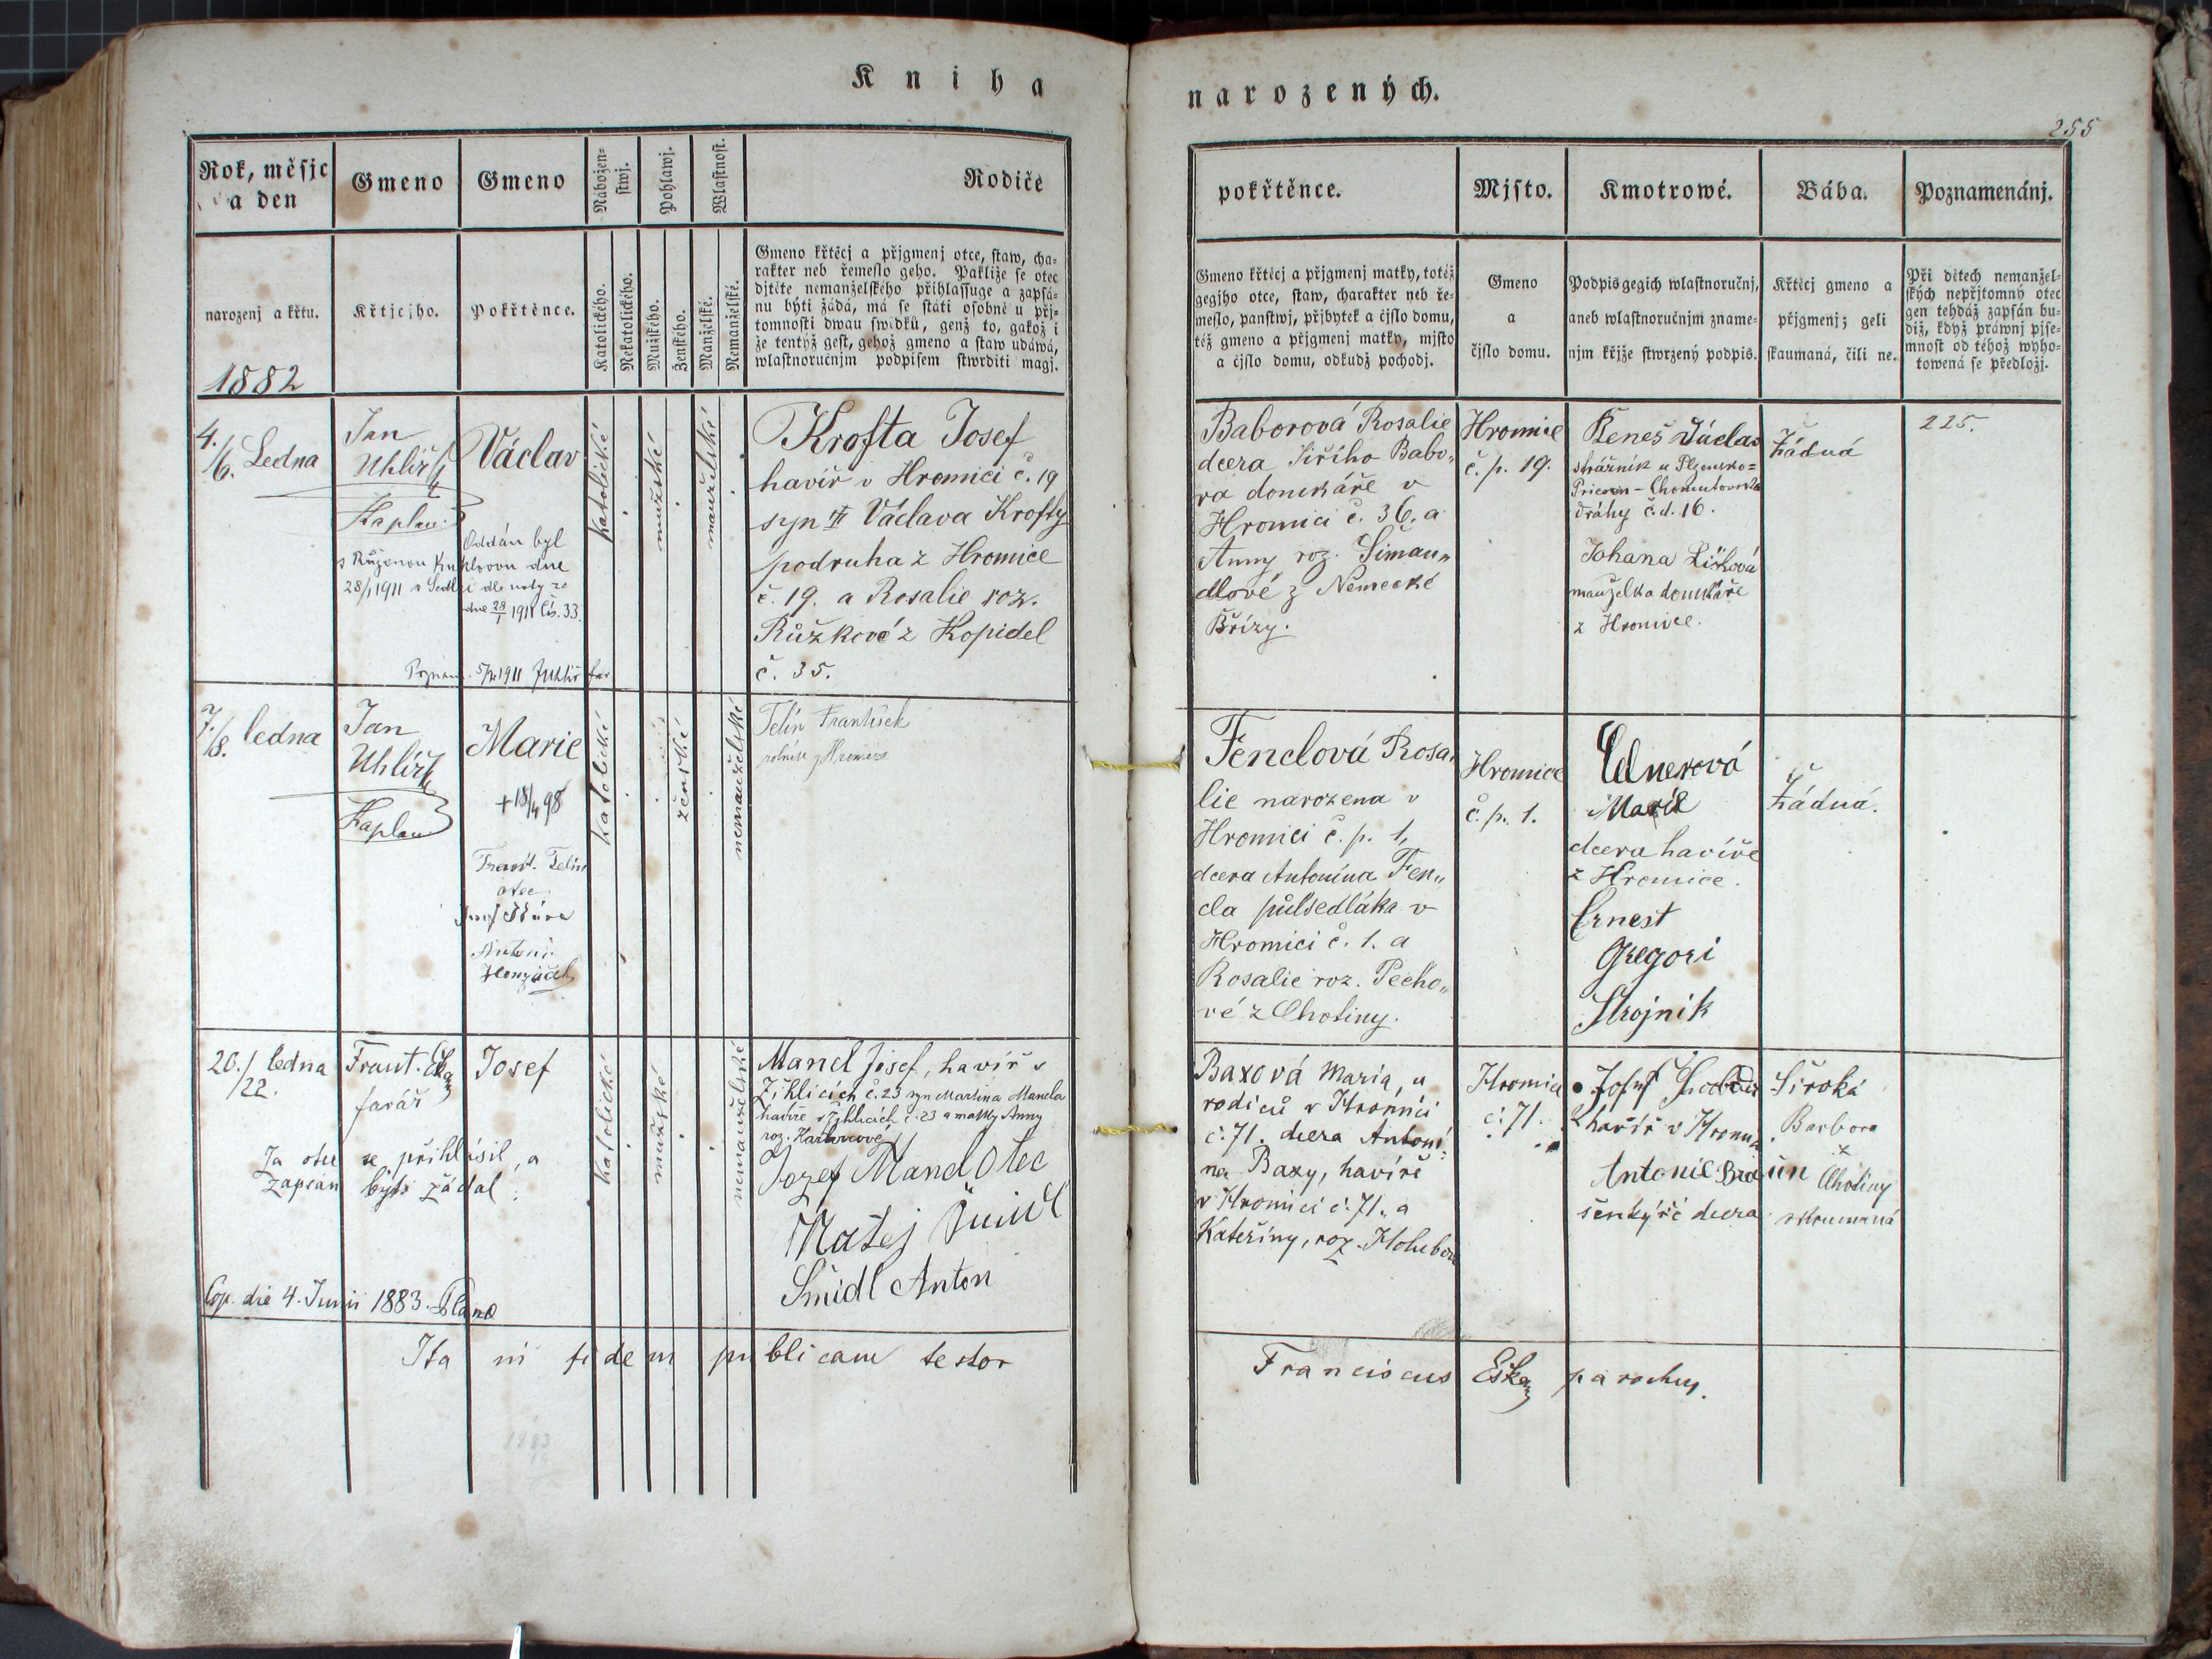 Kniha
narozených.
255
Rok, měsjc
a den
Gmeno
Gmeno
Nábožen-
stwj.
Pohlawj.
Wlastnost.
Rodiče
pokřtěnce.
Mjsto.
Kmotrowé.
Bába.
Poznamenánj.
narozenj a křtu.
1882
Křtjcjho.
Pokřtěnce.
Katolického.
Nekatolického.
Mužského.
Ženského.
Manželské.
Nemanželské.
Gmeno křtěcj a přjgmenj otce, staw, cha-
rakter neb řemeslo geho. Pakliže se otec
djtěte nemanželského přihlassuge a zapsá-
nu býti žádá, má se státi osobně u přj-
tomnosti dwau swědků, genž to, gakož i
že tentýž gest, gehož gmeno a staw udáwá,
wlastnoručnjm podpisem stwrditi magj.
Gmeno křtěcj a přjgmenj matky, totéž
gegjho otce, staw, charakter neb ře-
meslo, panstwj, přjbytek a čjslo domu,
též gmeno a přjgmenj matky, mjsto
a čjslo domu, odkudž pocházj.
Gmeno
a
čjslo domu.
Podpis gegich wlastnoručnj,
aneb wlastnoručnjm zname-
njm křjže stwrzený podpis.
Křtěcj gmeno a
přjgmenj; geli
skaumaná, čili ne.
Při dětech nemanžel-
ských nepřjtomný otec
gen tehdáž zapsán bu-
diž, když práwnj pjse-
mnost od téhož wyho-
towená se předložj.
4./6. Ledna
Jan
Uhlíř
Kaplan
Václav
Oddán byl
s Růženou Kuklovou dne
28/1 1911 v Sedlci dle noty ze
dne 28/1 1911 čís. 33.
Poznam. 1911 JUhlíř far
katolické
mužské
manželské
Krofta Josef
havíř v Hromici č. 19
syn Václava Krofty
podruha z Hromice
č. 19. a Rosalie roz.
Růžkové z Kopidel
č. 35.
Baborová Rosalie
dcera Jiřího Babo„
ra domkáře v
Hromici č. 36. a
Anny roz. Šiman„
dlové z Německé
Břízy.
Hromice
č. p. 19.
Beneš Václav
strážník u Plzensko=
Priesen-Chomutovské
dráhy č.d. 16.
Johana Lišková
manželka domkáře
z Hromice.
Žádná
225.
7./8. ledna
Jan
Uhlíř
Kaplan
Marie
+18/4 98
Frant. Telín
otec
Antoní
katolické
ženské
nemanželské
Telín František
rolník z Hromice
Fenclová Rosa„
lie narozena v
Hromici č. p. 1,
dcera Antonína Fen„
cla půlsedláka v
Hromici č. 1. a
Rosalie roz. Pecho„
vé z Chotiny.
Hromice
č. p. 1.
Marie
dcera havíře
z Hromice.
Ernest
Gregori
Strojnik
Žádná.
20./22. ledna
Frant. Eška
farář
Josef
Za otce se přihlásil, a
zapsán býti žádal.
Cop. die 4. Junii 1883.
katolické
mužské
nemanželské
Mandl Josef, havíř v
Žihlicích č. 23 syn Martina Mandla
havíře v Žihlicích č. 23 a matky Anny
roz.
Jozef Mandl Otec
Matěj
Šmidl Anton
Baxová Maria, u
rodičů v Hromici
č. 71. dcera Antoní„
na Baxy, havíře
v Hromici č. 71. a
Kateřiny, roz. Holubové
Hromice
č. 71.
havíř v Hromici
Antonie
šenkýře dcera
Široká
Barbora
z
Chotiny
skoumaná
Ita in fidem publicam testor
Franciscus Eška parochus.